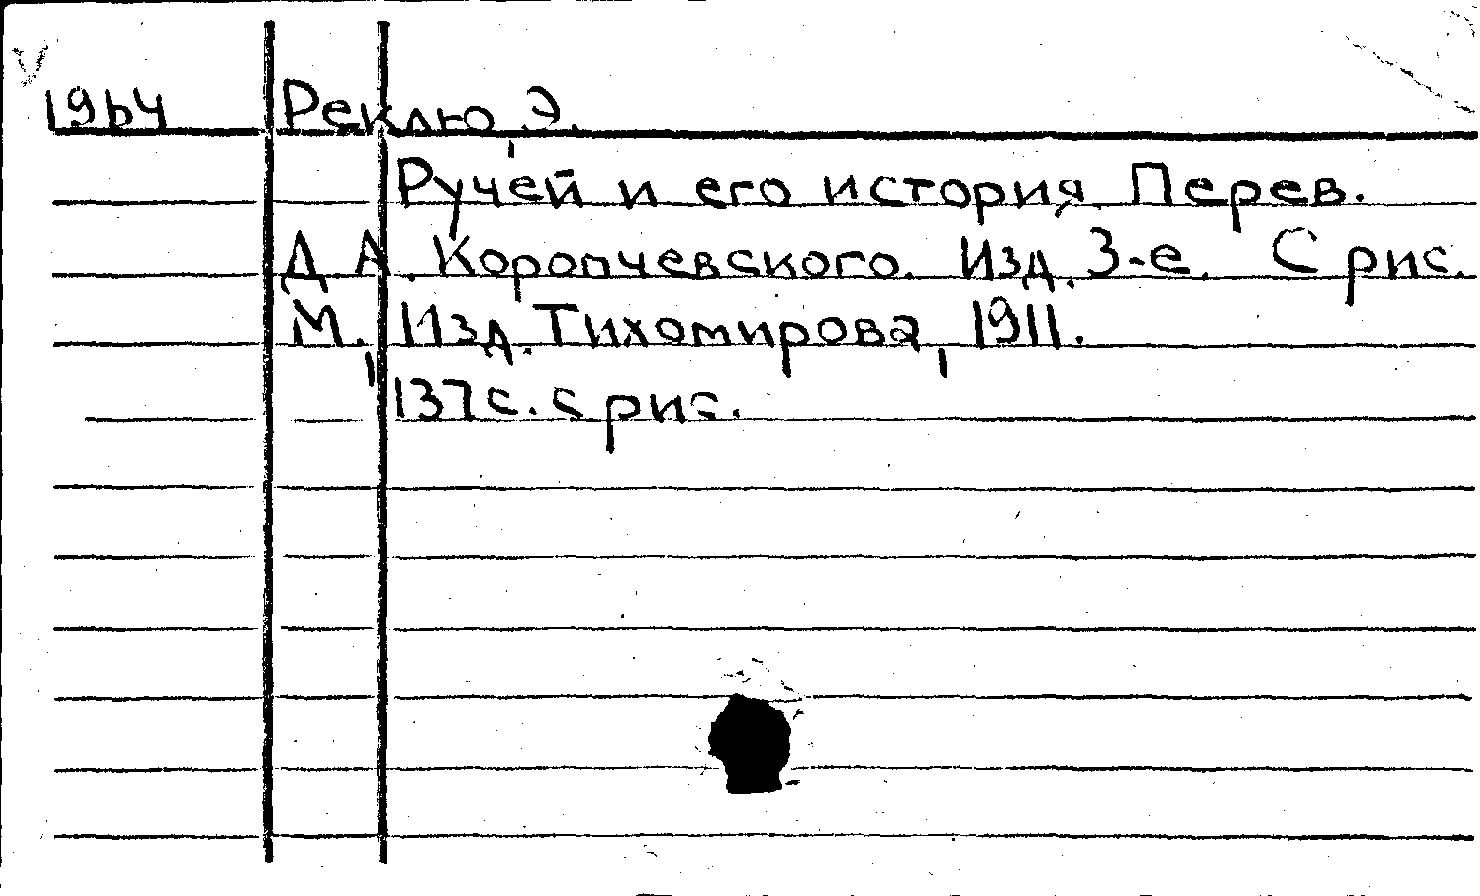 1964 Реклю, Э.
Ручей и его история. Перев.
Д. А. Коропчевского. Изд. 3-е. С рис.
М., Изд. Тихомирова, 1911.
137 с. с рис.